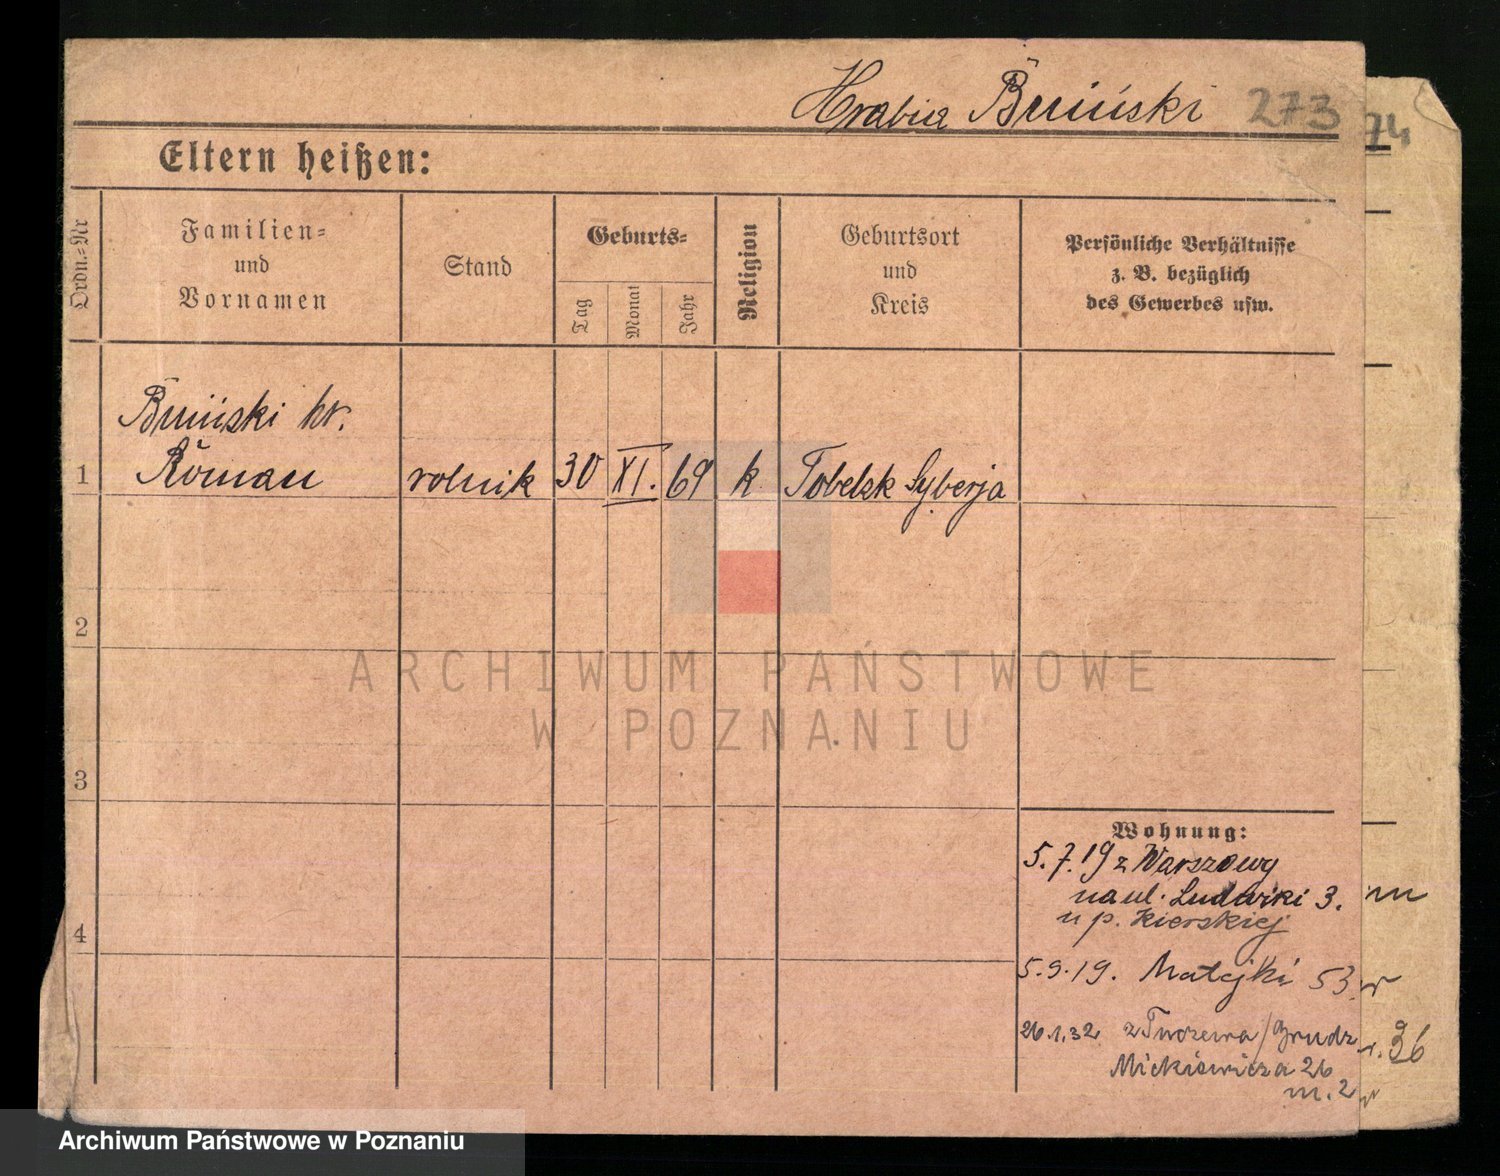 Hrabia Bniński 273
74
Eltern heißen:
Ordn.-Nr
Familien-
und
Vornamen
Stand
Geburts-
Tag
Monat
Jahr
Religion
Geburtsort
und
Kreis
Persönliche Verhältnisse
z. B. bezüglich
des Gewerbes usw.
Bniński hr.
1 Roman rolnik 30 XI. 69 k Tobolsk Syberja
2
3
4
Wohnung:
5.7.19 z Warszawy
na ul. Ludwiki 3.
u p. Kierskiej
5.9.19. Matejki 53.
26.1.32 z /Grudz
Mickiewicza 26
m. 2
m
36
ARCHIWUM PAŃSTWOWE
W POZNANIU
Archiwum Państwowe w Poznaniu